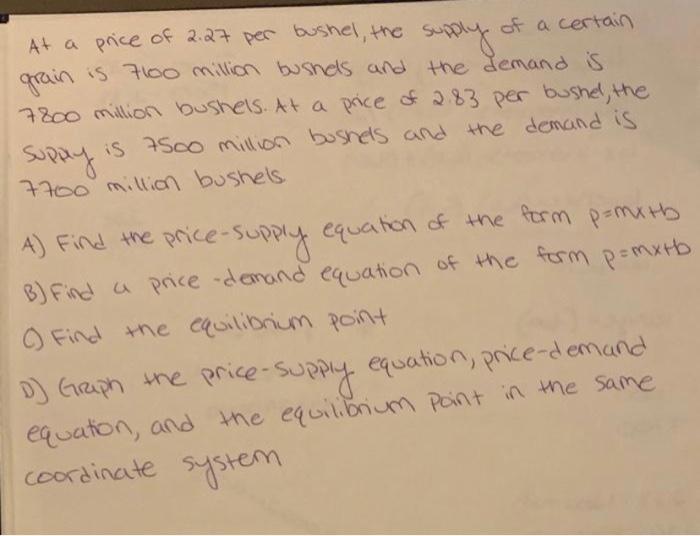 At a price of 2.27 per bushel, the supply of a certain
grain is 7100 million bushels and the demand is
7800 million bushels. At a price of 2.83 per bushel, the
supply is 7500 million bushels and the demand is
7700 million bushels
A) Find the price-supply equation of the form p=mx+b
B) Find a price-demand equation of the form p=mx+b
C) Find the equilibrium point
D) Graph the price-supply equation, price-demand
equation, and the equilibrium point in the same
coordinate system